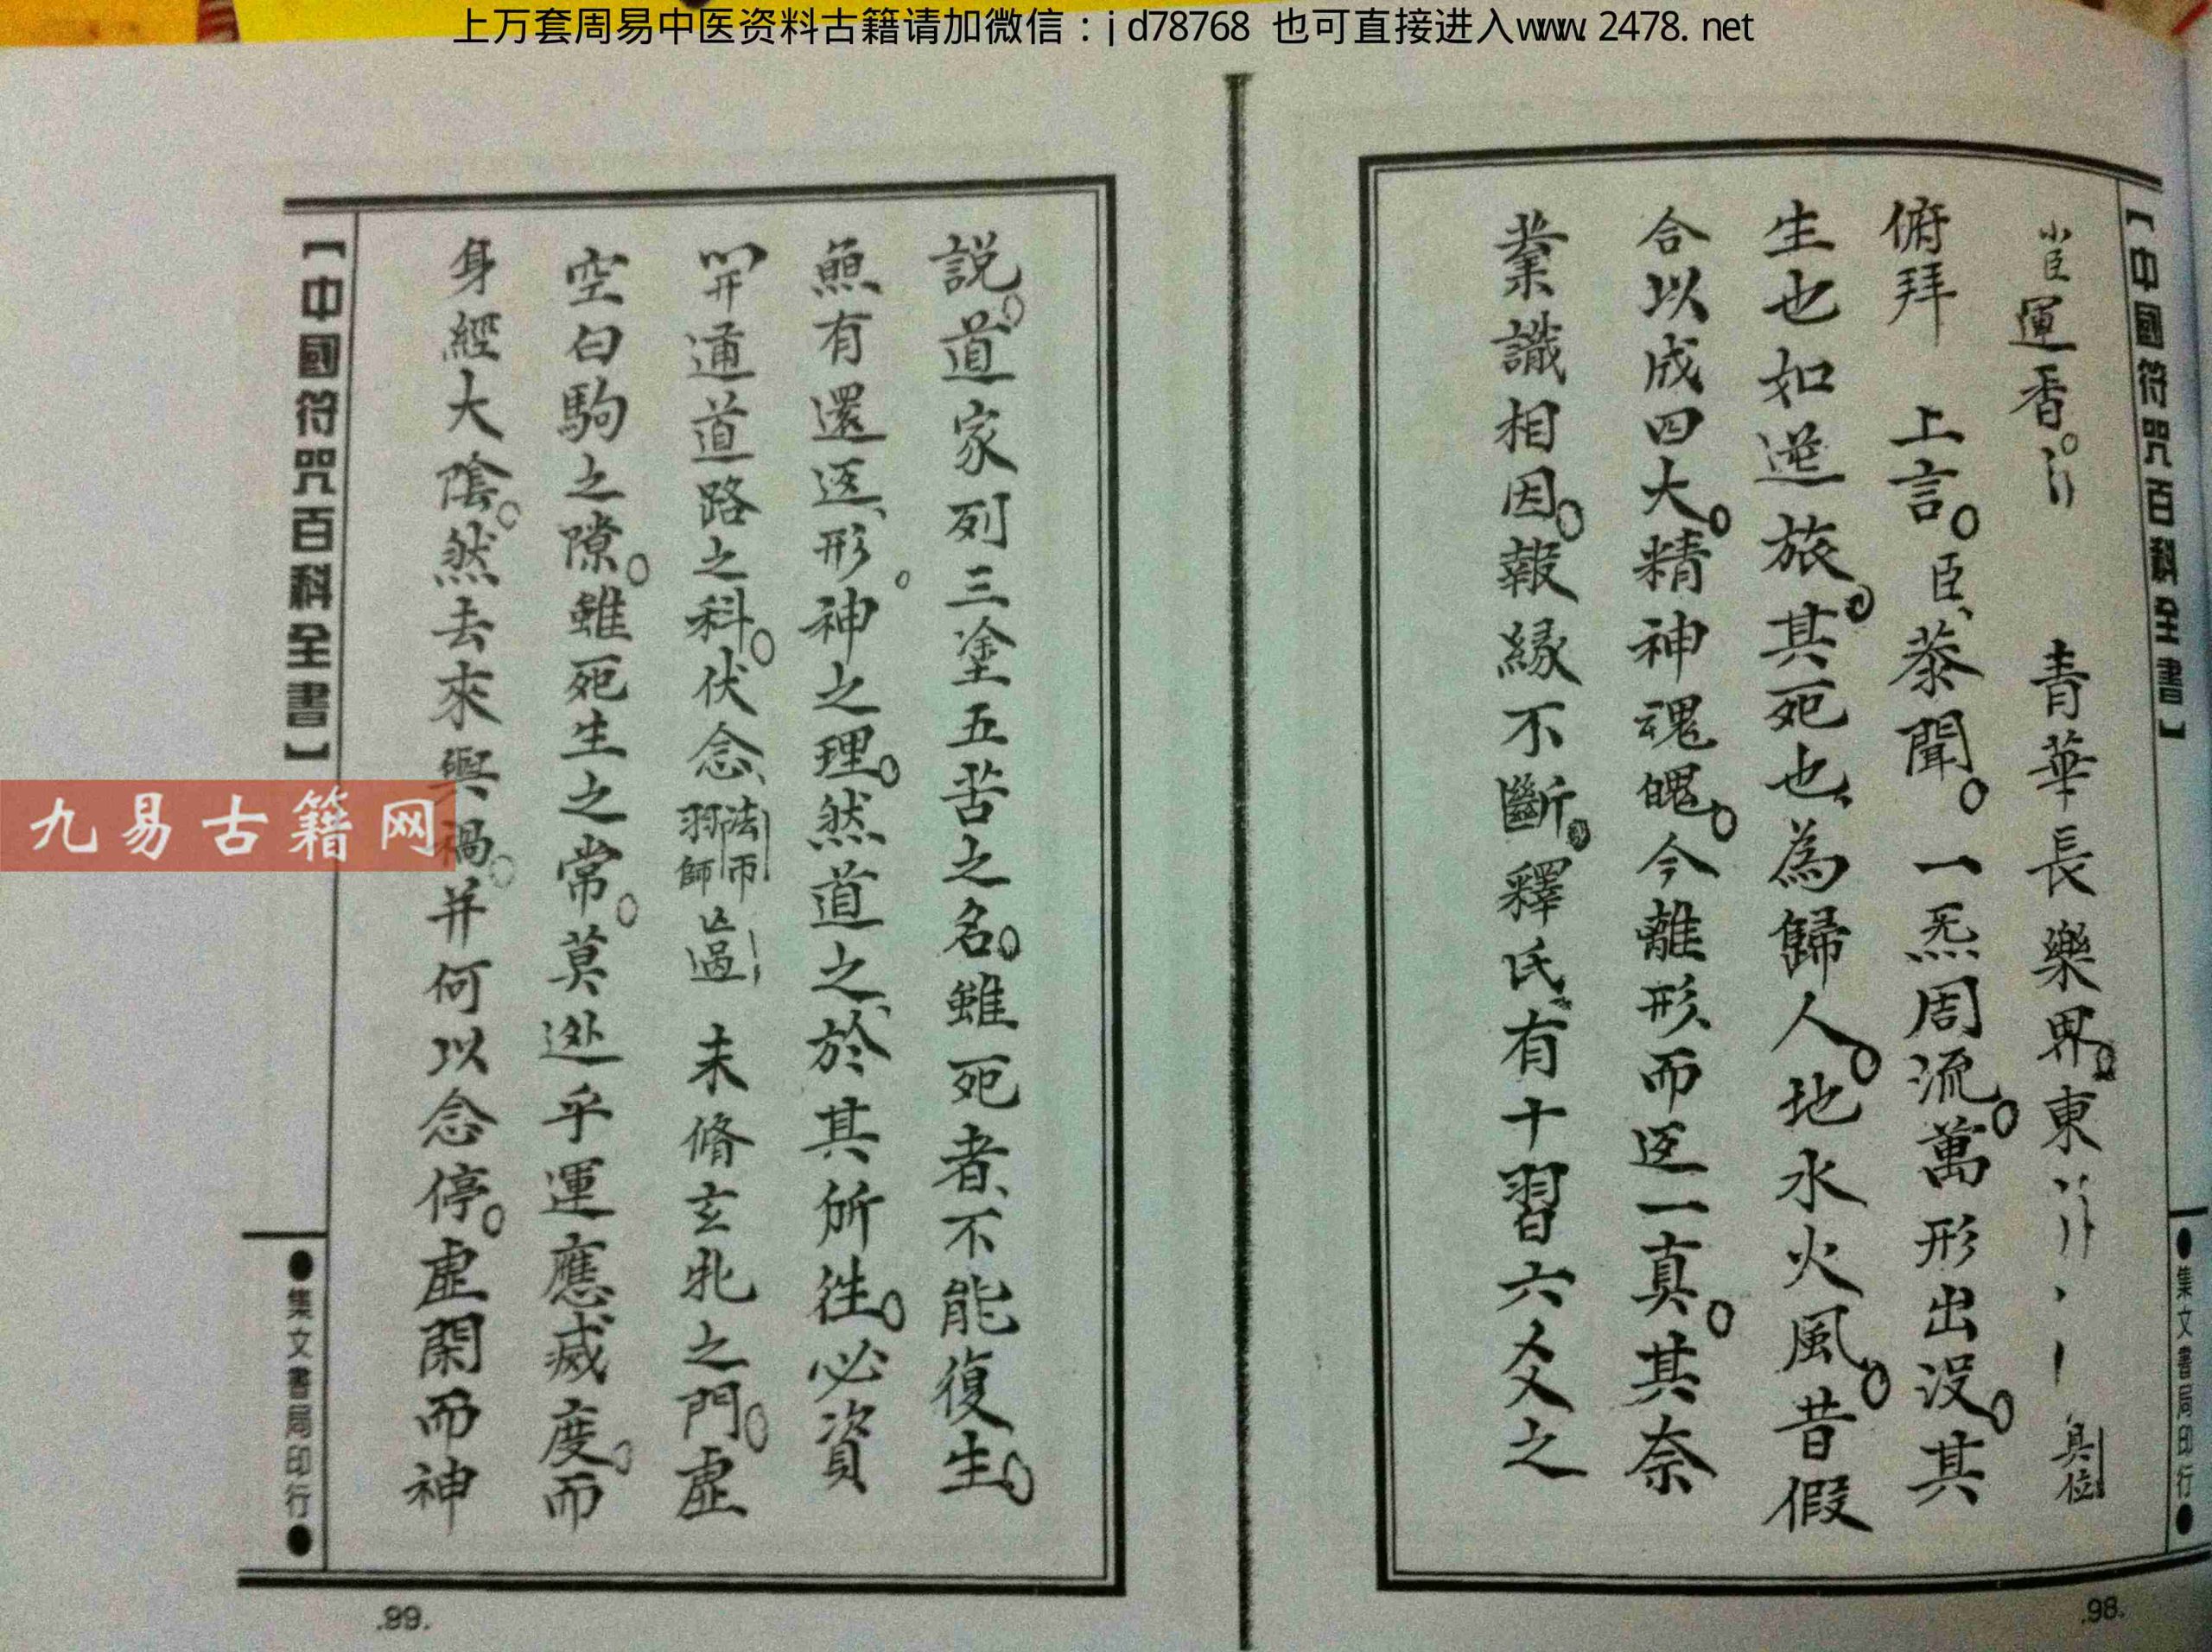 上万套周易中医资料古籍请加微信：jd78768 也可直接进入www.2478.net
【中國符咒百科全書】
●集文書局印行●
小臣運香。 青華長樂界。東 具位
俯拜 上言。臣、恭聞。一炁周流。萬形出没。其
生也如逆旅。其死也、為歸人。地水火風。昔假
合以成四大。精神魂魄。今離形而返一真。其奈
業識相因。報緣不斷。釋氏有十習六爻之
.98.
説。道家列三塗五苦之名。雖死者、不能復生。
無有還返、形神之理。然道之、於其所往。必資
開通道路之科。伏念、法師 羽師 亡過 未脩玄牝之門。虛
空白駒之隙。雖死生之常。莫逃乎運應滅度。而
身經大陰。然去來與禍。并何以念停。虛閑而神
【中國符咒百科全書】
●集文書局印行●
.99.
九易古籍网